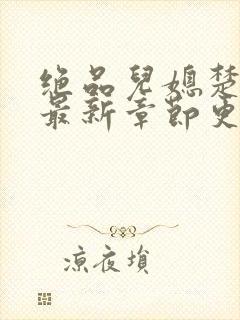 绝品儿媳楚
最新章节更
凉夜埙